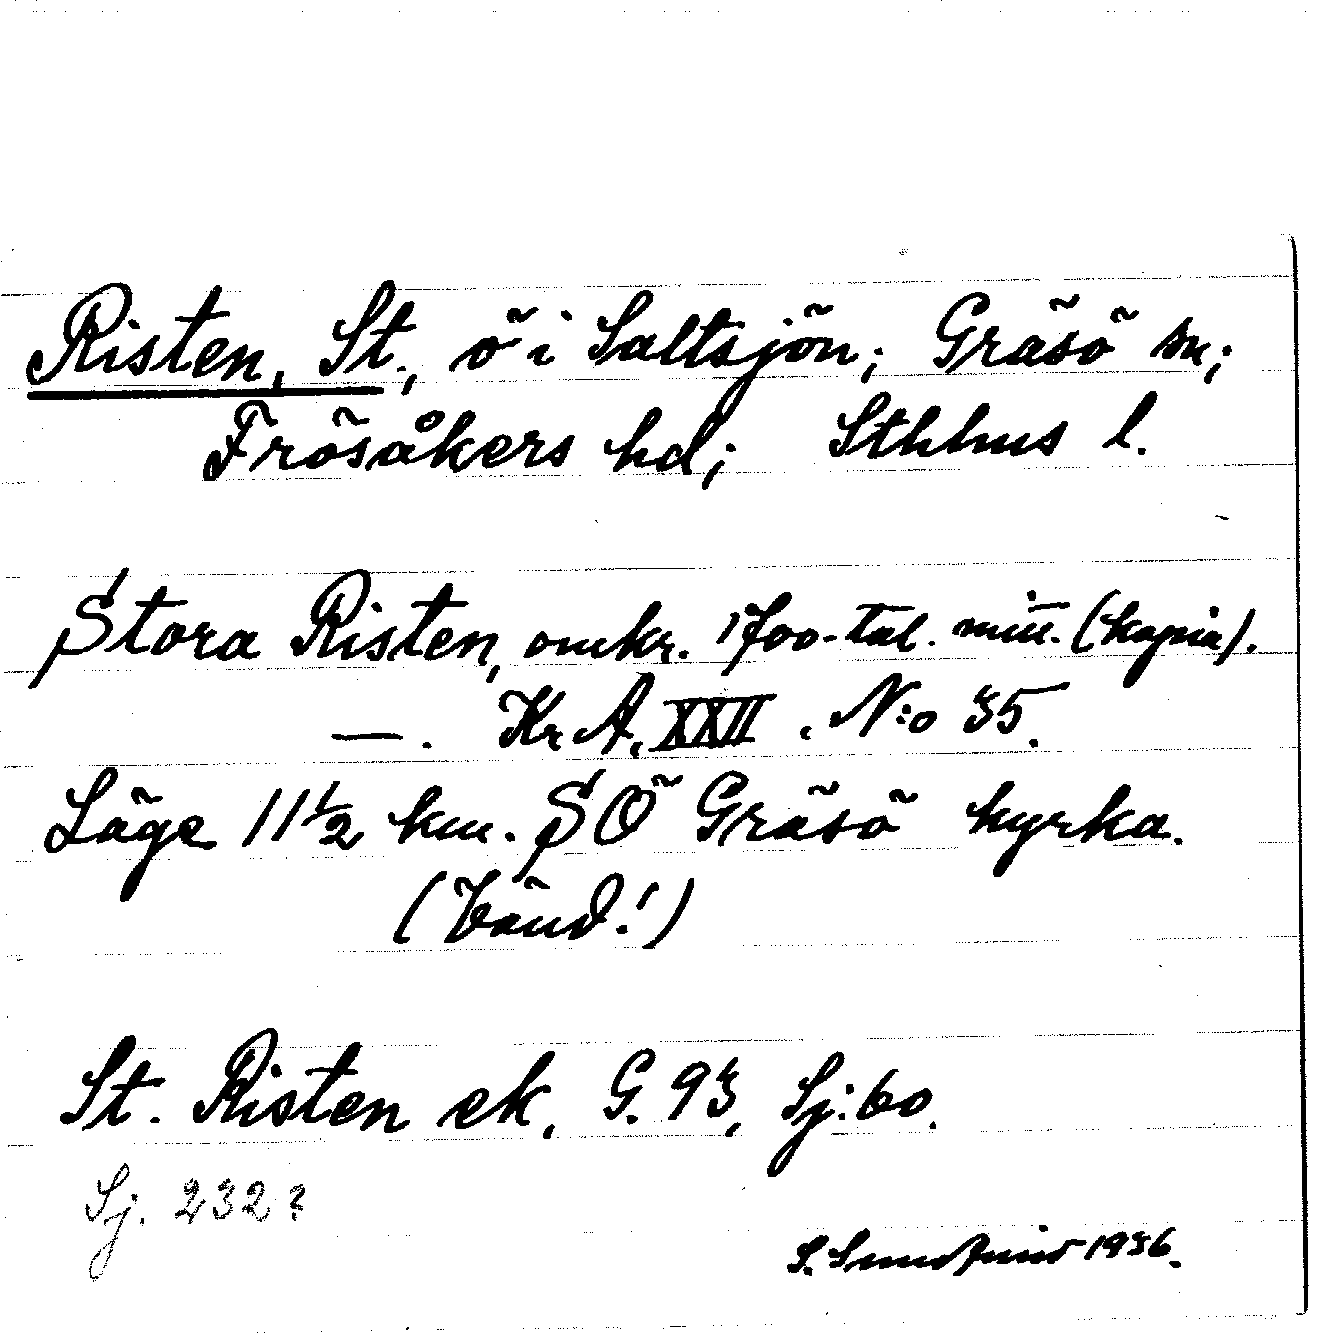 Risten, St., ö i Saltsjön; Gräsö sn;
Frösåkers hd; Sthlms l.
Stora Risten, omkr. 1700-tal. mitt. (kopia).
—. Kr. A. XXII. N:o 35.
Läge 11½ km. SÖ Gräsö kyrka.
(bänd!)
St. Risten ek. G. 93, Sj: 60.
Sj. 232?
S. 1936.